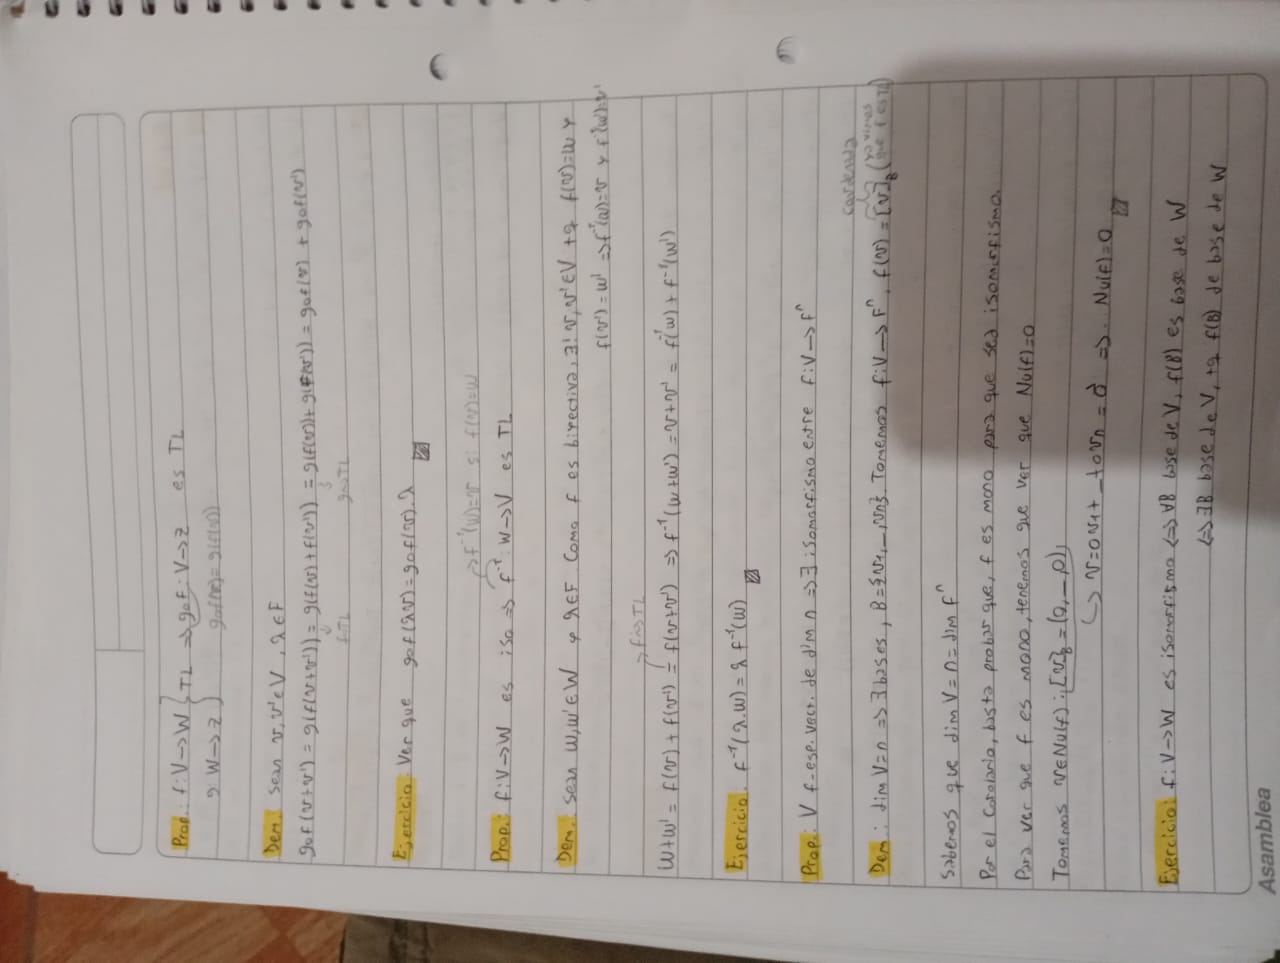 Prop.: f:V→W } TL ⇒ gof: V→Z es TL
g: W→Z
gof(v)=g(f(v))
Dem.: sean v,v'∈V, λ∈F
gof(v+v') = g(f(v+v')) = g(f(v)+f(v')) = g(f(v))+g(f(v')) = gof(v) + gof(v')
f TL g es TL
Ejercicio: Ver que gof(λv)=gof(v).λ
→ f⁻¹(w)=v si f(v)=w
Prop.: f:V→W es iso ⇒ f⁻¹: W→V es TL
Dem.: sean w,w'∈W y λ∈F Como f es biyectiva, ∃! v,v'∈V tq f(v)=w y
f(v')=w' ⇒ f⁻¹(w)=v y f⁻¹(w')=v'
→ f es TL
w+w' = f(v)+f(v') = f(v+v') ⇒ f⁻¹(w+w')=v+v' = f⁻¹(w)+f⁻¹(w')
Ejercicio: f⁻¹(λ.w)=λ f⁻¹(w)
Prop.: V f-esp. vect. de dim n ⇒ ∃ isomorfismo entre f:V→Fⁿ
Dem.: dim V=n ⇒ ∃ bases, B={v1,_,vn}. Tomemos f:V→Fⁿ, f(v)=[v]B (ya vimos
que f es TL)
Sabemos que dim V=n=dim Fⁿ
Por el corolario, basta probar que, f es mono para que sea isomorfismo.
Para ver que f es mono, tenemos que ver que Nu(f)=0
Tomemos v∈Nu(f): [v]B=(0,_,0)
↳ v=0v1+_+0vn=0 ⇒ Nu(f)=0
Ejercicio: f:V→W es isomorfismo ⇔ ∀B base de V, f(B) es base de W
⇔ ∃B base de V, tq f(B) de base de W
Asamblea